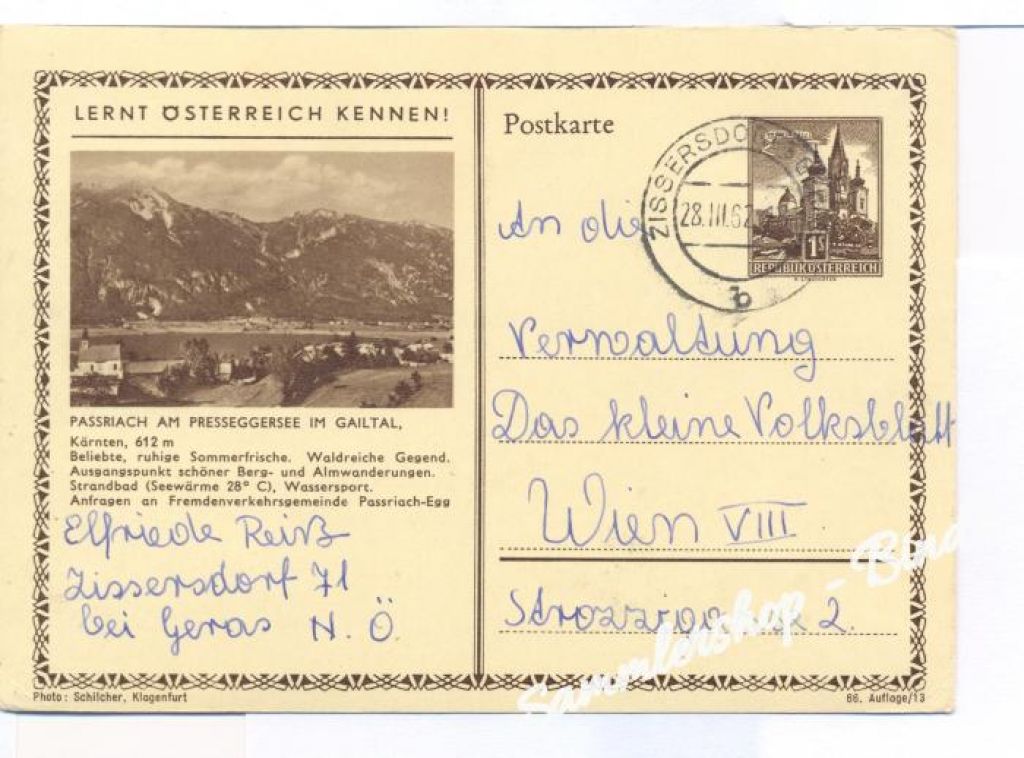 LERNT ÖSTERREICH KENNEN!
PASSRIACH AM PRESSEGGERSEE IM GAILTAL,
Kärnten, 612 m
Beliebte, ruhige Sommerfrische. Waldreiche Gegend.
Ausgangspunkt schöner Berg- und Almwanderungen.
Strandbad (Seewärme 28° C), Wassersport.
Anfragen an Fremdenverkehrsgemeinde Passriach-Egg
Elfriede Reiß
Zissersdorf 71
bei Geras N.Ö.
Photo: Schilcher, Klagenfurt
Postkarte
ZISSERSDO
28.III.62
b
1S
REPUBLIK ÖSTERREICH
An die
Verwaltung
Das kleine Volksblatt
Wien VIII
2.
Sammlershop -
66. Auflage/13